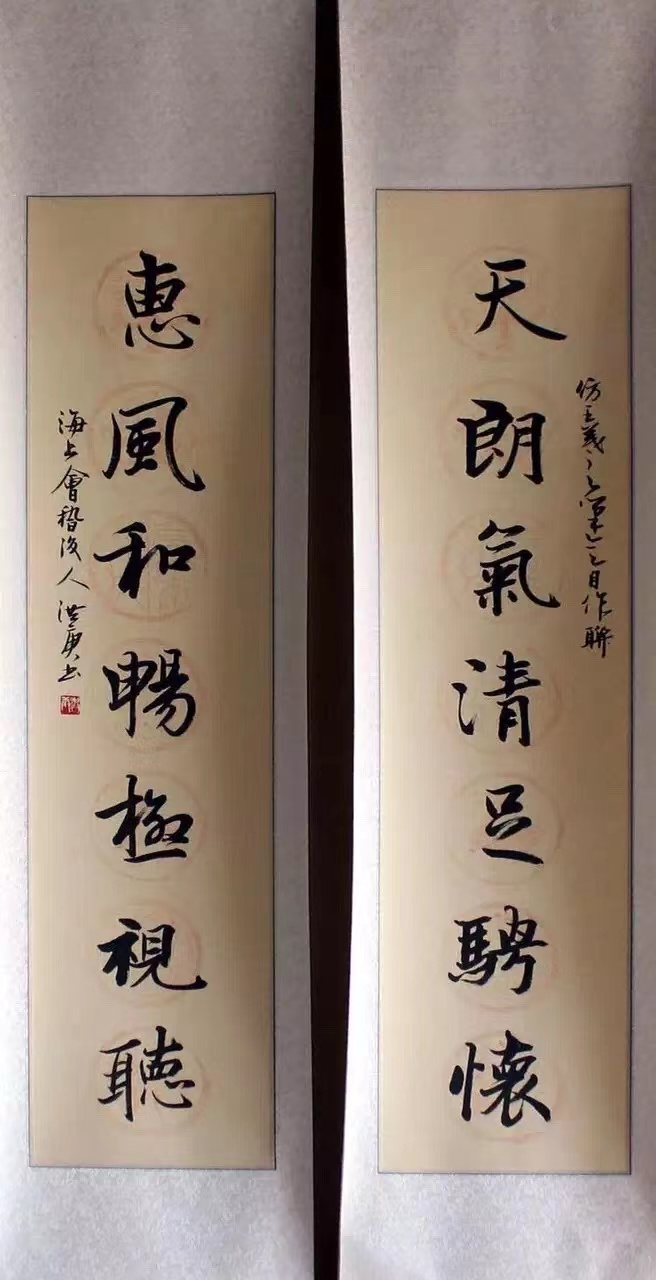 天朗氣清足騁懷
仿王羲之筆意自作聯
惠風和暢極視聽
海上會稽後人洪庚書